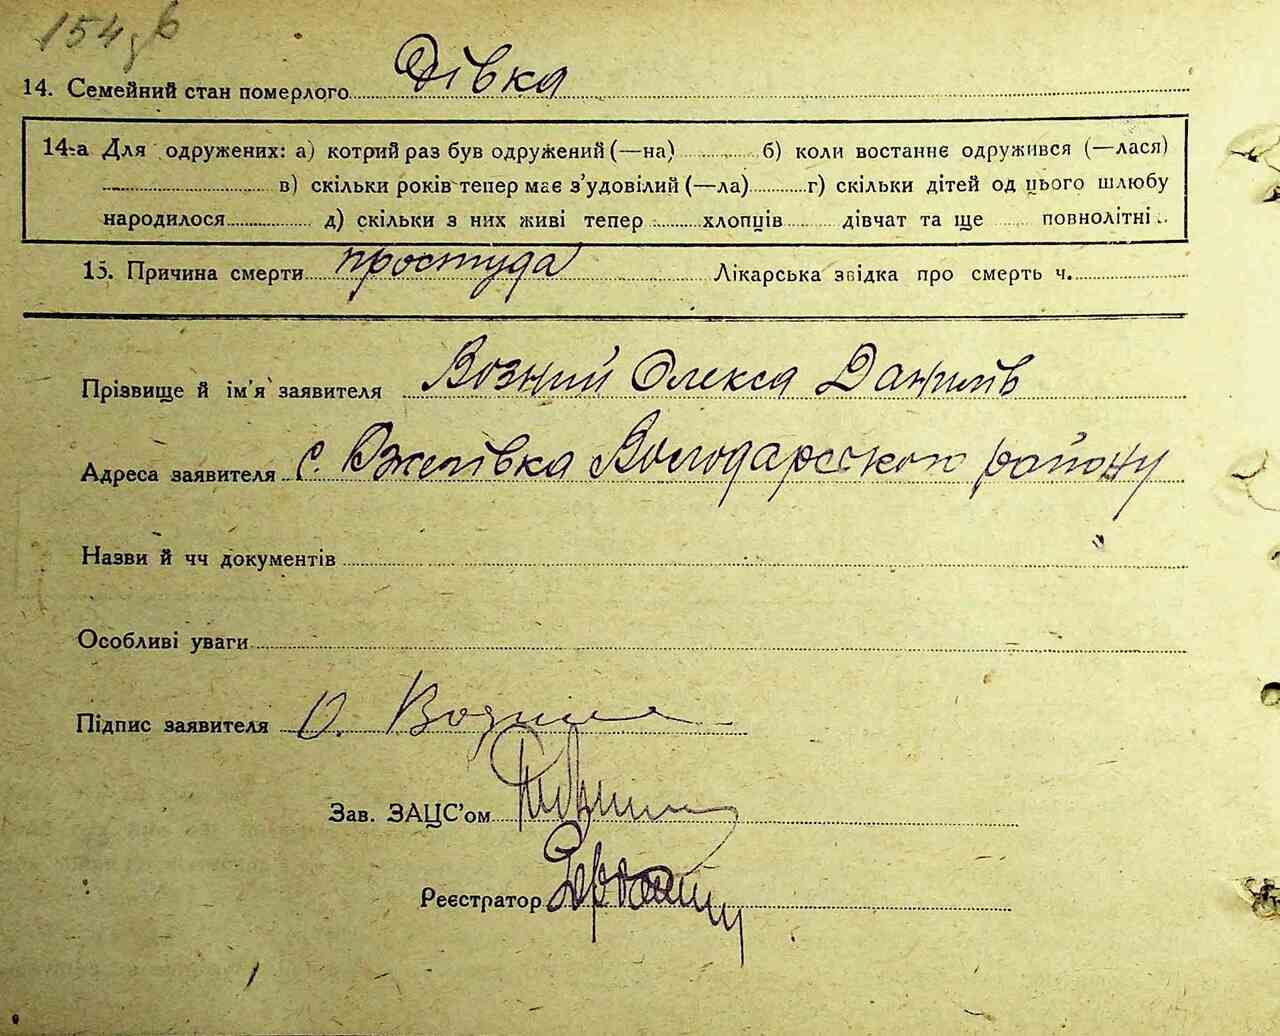 154 зв
14. Семейний стан померлого Дівка
14-а Для одружених: а) котрий раз був одружений (—на) б) коли востаннє одружився (—лася)
в) скільки років тепер має з'удовілий (—ла) г) скільки дітей од цього шлюбу
народилося д) скільки з них живі тепер хлопців дівчат та ще повнолітні
15. Причина смерти простуда Лікарська звідка про смерть ч.
Прізвище й ім'я заявителя Возний Олекса Данилів
Адреса заявителя с. Володарського району
Назви й чч документів
Особливі уваги
Підпис заявителя О. Возний
Зав. ЗАЦС'ом
Реєстратор